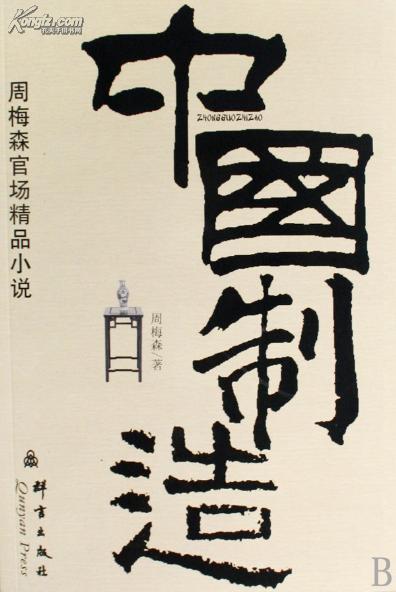 Kongfz.com
孔夫子旧书网
中國制造
ZHONGGUOZHIZAO
周梅森官场精品小说
周梅森/著
群言出版社
Qunyan Press
B